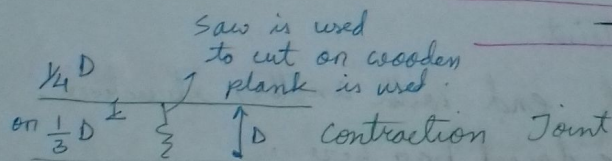 Saw is used
to cut on wooden
plank is used.
1/4 D
on 1/3 D
D
Contraction Joint